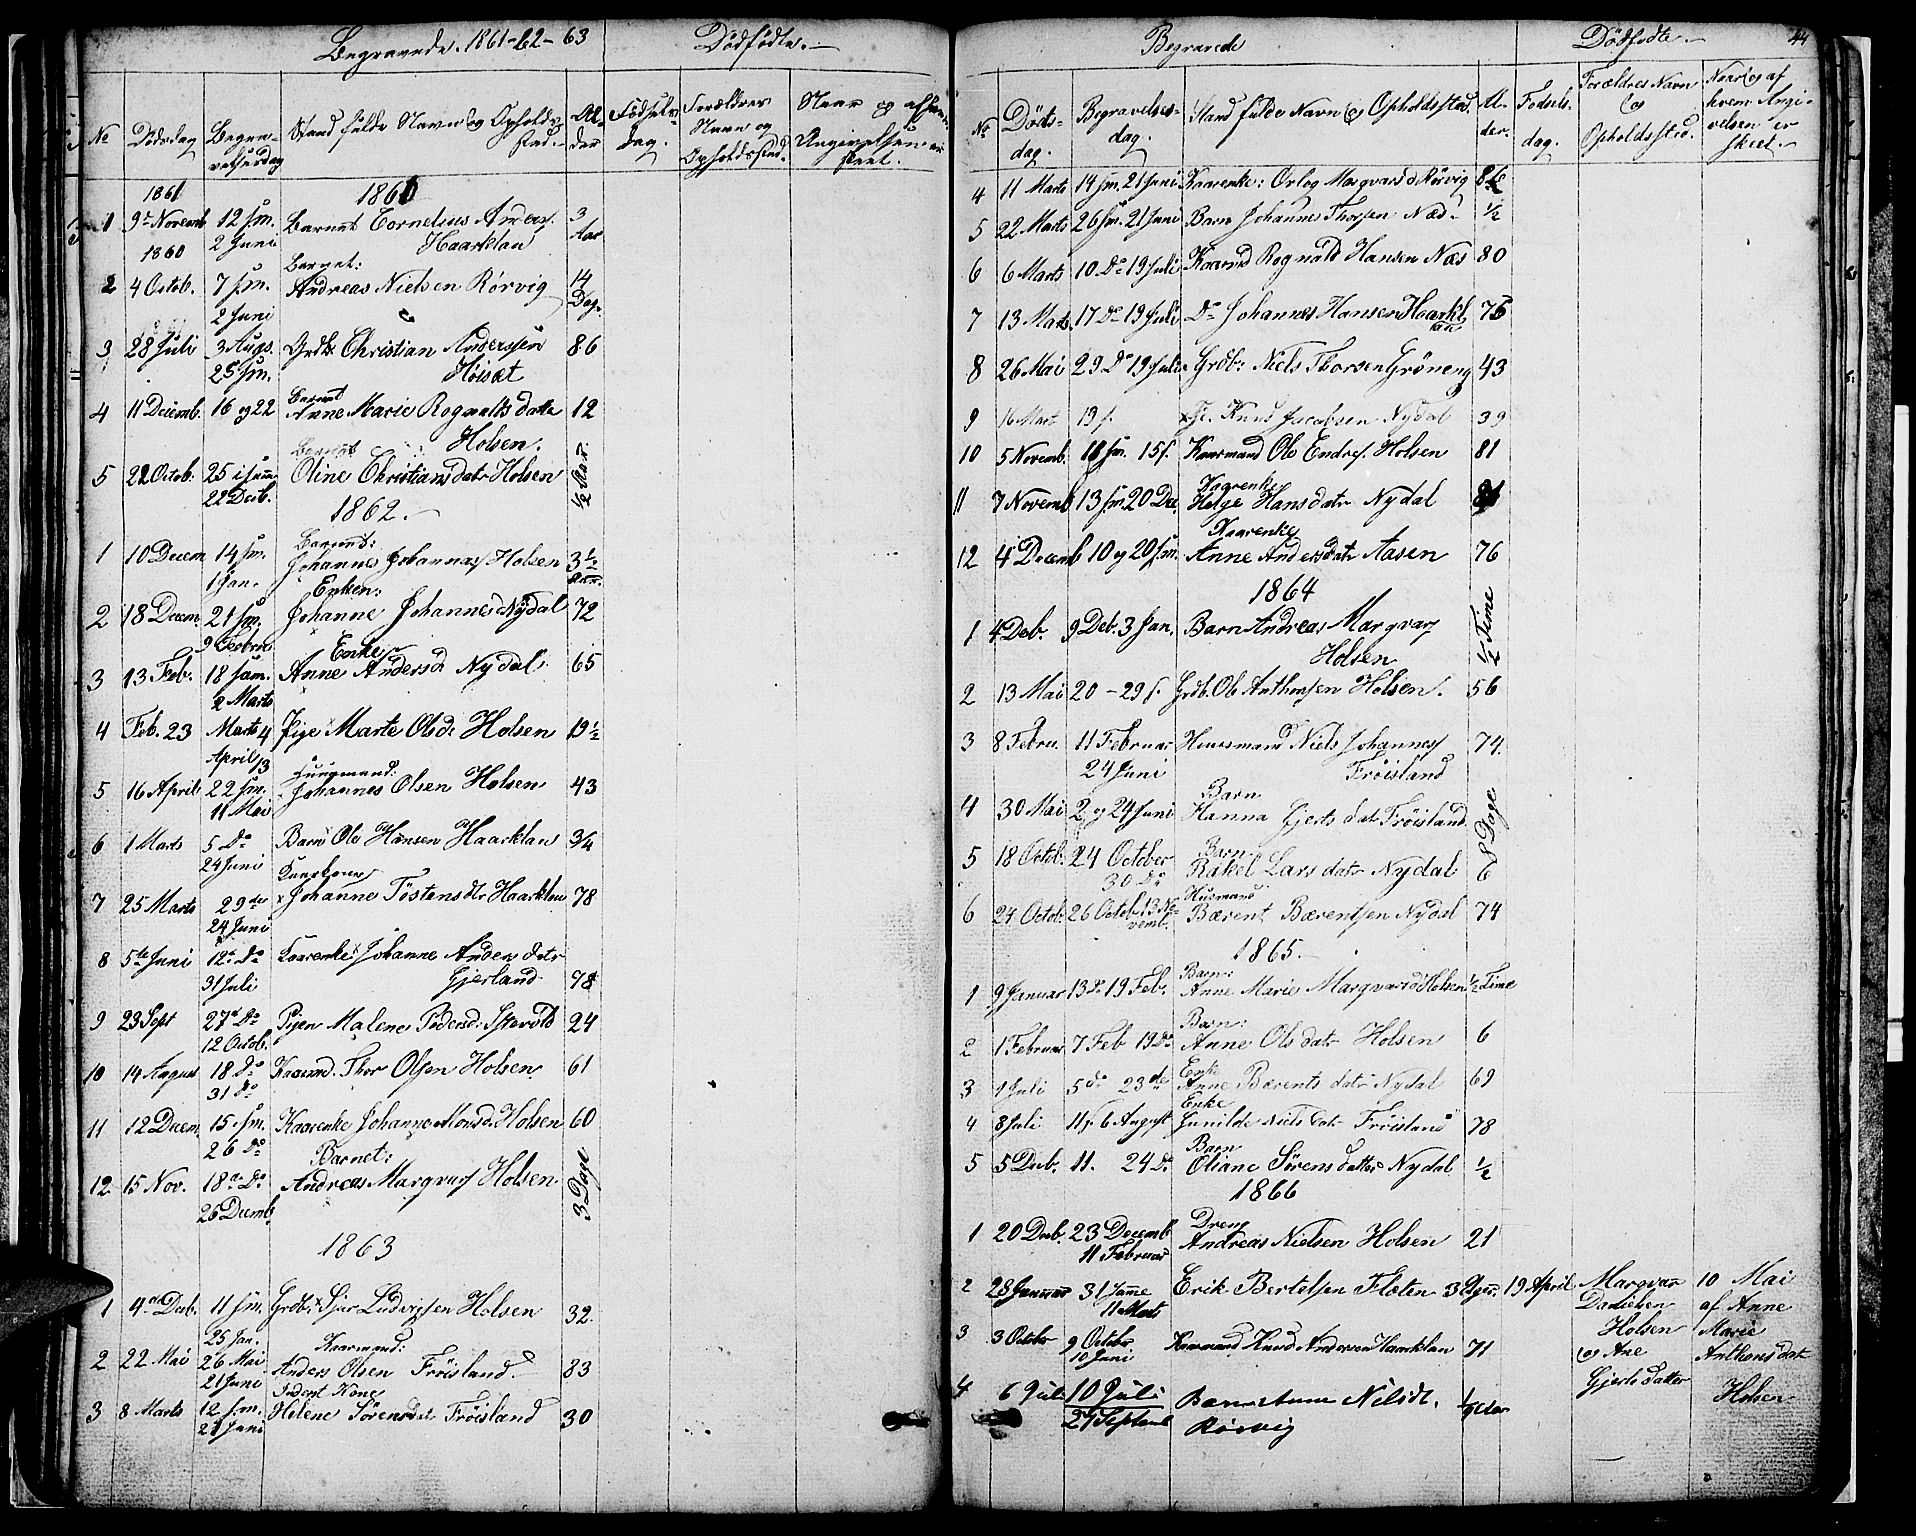 Begravede. 1861-62-63
Dødfødte.
No Dødsdag Begravelsesdag Stand fulde Navn og Opholdssted. Alder Fødselsdag. Forældres Navn og Opholdssted. Naar og af hvem Angivelsen er skeet.
1861 1861
1 9de Novemb 12 jm. Barnet Cornelius Anders. 3 Aar
2 Juni Haarklau
1860 Barnet:
2 4 Octob. 7 jm. Andreas Nielsen Rørvig 14 Dag.
2 Juni
3 28 Juli 3 Augs. Grdb: Christian Anderssen 86
25 jm. Høisæt
4 11 Decemb. 16 og 22 Barnet Anne Marie Rognaltsdatte 12
Holsen.
Barnet
5 22 Octob. 25 i jum Oline Christiansdatr Holsen ½ Aar.
22 Decb.
1862.
Barnet:
1 10 Decem 14 jm. Johannes Johannes Holsen 3½ Aar.
1 Jan. Enken:
2 18 Decem. 21 jm. Johanne Johannes Nydal 72
9 Febru Enke
3 13 Feb. 18 jam. Anne Andersd Nydal. 65
2 Marts
4 Feb. 23 Marts 4 Pige Marte Olsd. Holsen 19½
April 13 Huusmand:
5 16 April 22 jm. Johannes Olsen Holsen 43
11 Mai
6 1 Marts 5 Do Barn Ole Hansen Haarklau 3/4
24 Juni
7 25 Marts 29de Johanne Tostensdtr Haarklau 78
24 Juni
8 5te Juni 12te Do Kaarenke: Johanne Andersdatr
31 Juli Gjerland 78
9 23 Sept 27de Do Pigen Malene Pedersd: 24
12 Octob.
10 14 August 18 Do Kaarmd. Thor Olsen Holsen 61
31 Do
11 12 Decem. 15. jm. Kaarenke Johanne Monsd. Holsen 60
26 Do Barnet:
12 15 Nov. 18de Do Andreas Margvars Holsen. 3 Dage
26 Decemb.
1863
1 4de Decb. 11 jm. Grdb: Sjur Ludvigsen Holsen 32.
25 Jan. Kaarmand:
2 22 Mai 26 Mai Anders Olsen Frøisland. 83
21 Juni Inderst Kone
3 8 Marts 12 jm. Helene Sørensdatr Frøisland 30
21 Juni
Begravede
Dødfødte.
44
No Dødsdag. Begravelsesdag. Stand fulde Navn og Opholdssted. Alder. Fødselsdag. Forældres Navn og Opholdssted. Naar og af hvem Angivelsen er skeet.
4 11 Marts 14 jm. 21 Juni Kaarenke: Margvardsd Rørvig 86
5 22 Marts 26 jm. 21 Juni Barn Johannes Thorsen Næs ½
6 6 Marts 10 Do 19 Juli Kaarmd Rognald Hansen Næs 80
7 13 Marts 17 Do 19 Juli Do Johannes Hansen Haarklau 75
8 26 Mai 29 Do 19 Juli Grdb: Niels Thorsen Grøneng 43
9 16 Mart 19 f. Knud Jacobsen Nydal 39
10 5 Novemb. 11 jm. 15 f. Kaarmand Ole Endres. Holsen 81
Kaarenke
11 7 Novemb 13 jm. 20 Dec. Helge Hansdatr Nydal 81
Kaarenke
12 4 Decemb 10 og 20 jm. Anne Andersdatr Aasen 76
1864
1 4 Decb. 9 Decb. 3 Jan. Barn Andreas Margvars ½ Time
Holsen
2 13 Mai 20 - 29 f. Grdb. Ole Anthonsen Holsen. 56
3 8 Febru. 11 Februar Huusmand Niels Johannes 74.
24 Juni Frøisland
Barn
4 30 Mai 2 og 24 Juni Hanna Gjertsdatr Frøisland 8 Dage
Barn
5 18 Octob. 24 October Rakel Larsdatr Nydal 6
30 Do Husmand
6 24 Octob: 26 Octob. 13 Novemb. Bærent Bærentsen Nydal 74
1865.
Barn:
1 9 Januar 13 Do 19 Feb. Anne Marie Margvarsd Holsen ½ Time
Barn:
2 1 Februar 7 Feb 19 Do Anne Olsdatr Holsen 6
Enke
3 1 Juli 5 do 23 do Anne Bærentsdatr Nydal 69
Enke
4 8 Juli 11 f. 6 August Gunilde Nielsdatr Frøisland 78
Barn
5 5 Decb. 11. 24 Do Oliane Sørensdatter Nydal ½
1866
Dreng
1 20 Decb. 23 Decemb Andreas Nielsen Holsen 21
11 Februar
2 28 Januar 31 Janne Erik Bertelsen Fløten 19 April Margvar 10 Mai
11 Marts Danielsen af Anne
3 3 Octobr 9 Octobr Kaarmand Knud Andersen Haarklau 71 Holsen Marie
10 Juni og Ane Anthonsdatr
4 6 Juli 10 Juli Barnet Nilsdt. Gjertsdatter Holsen
27 Septemb Rørvig